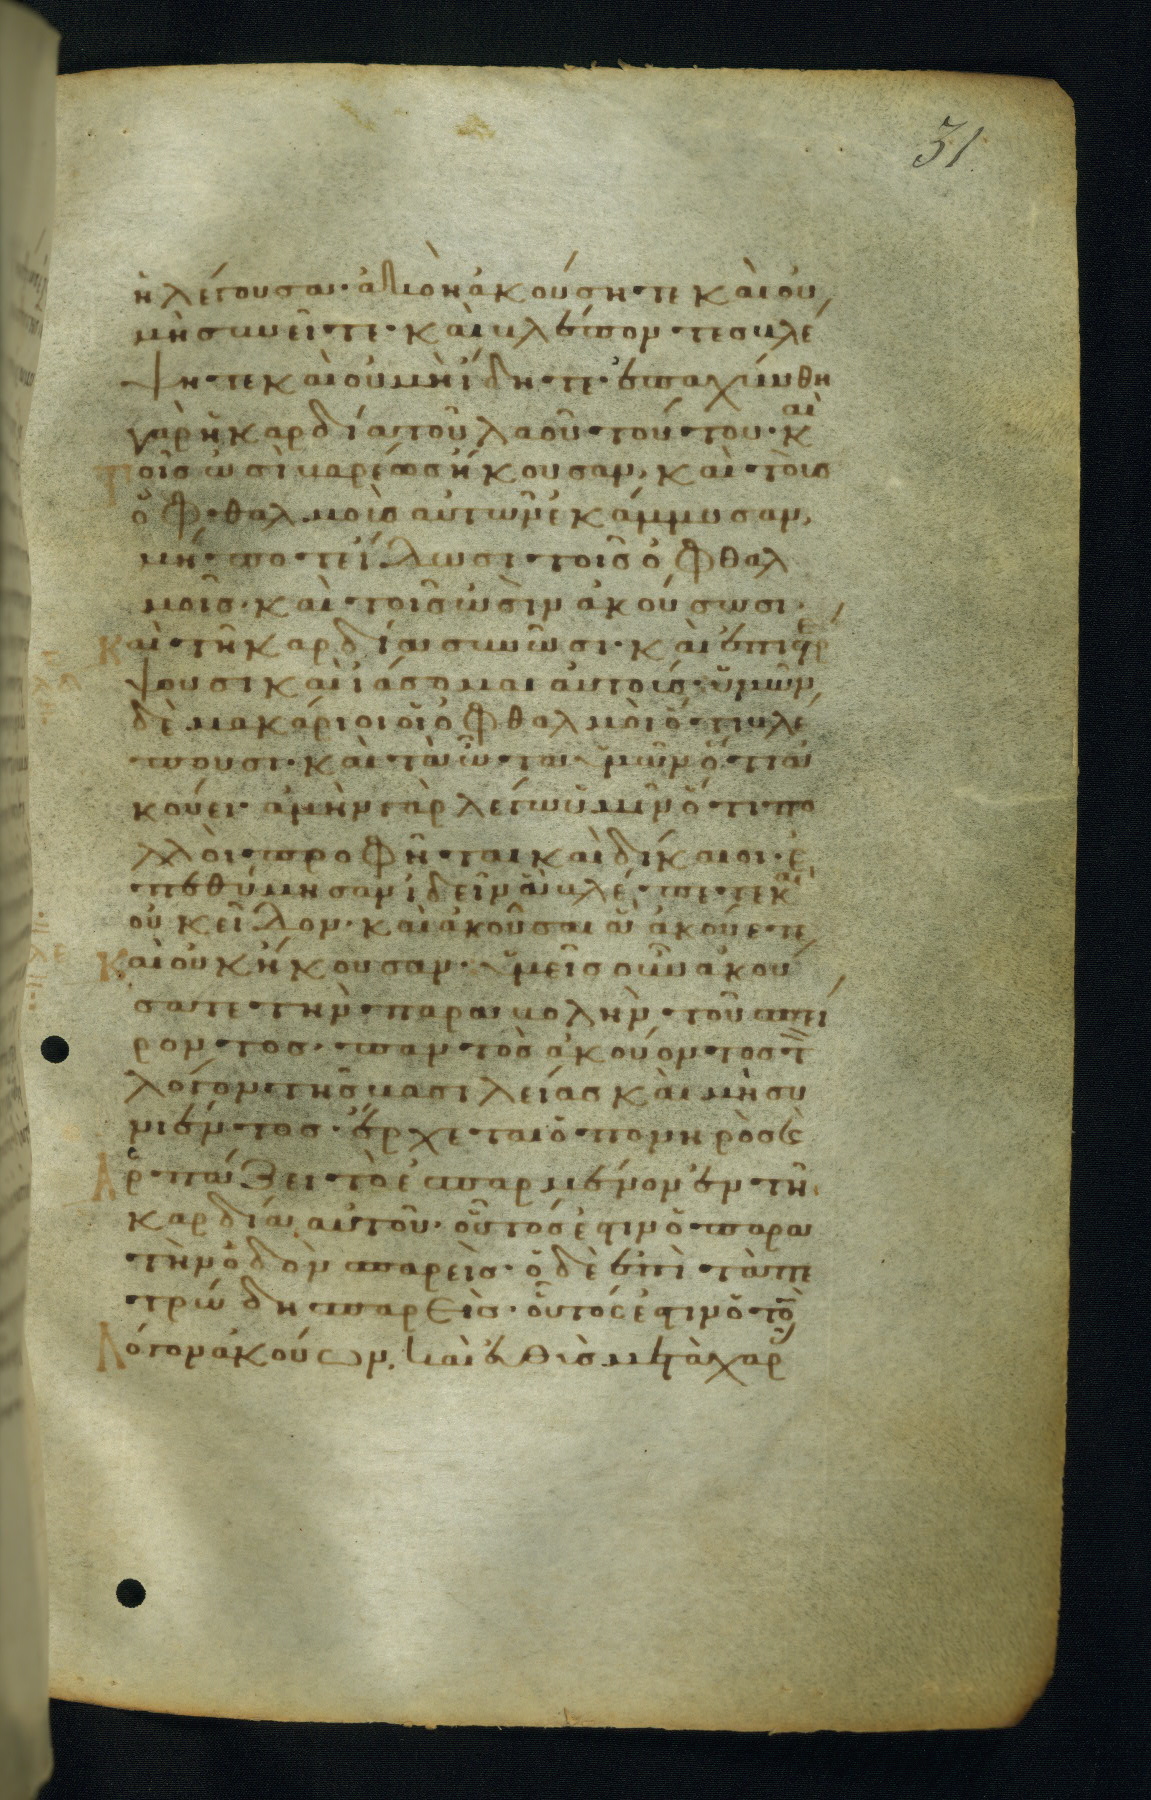 31
ἡ λέγουσα· ἀκοῆ ἀκούσητε καὶ οὐ
μὴ συνεῖτε· καὶ βλέποντες βλέ
ψητε καὶ οὐ μὴ ἴδητε· ἐπαχύνθη
γὰρ ἡ καρδία τοῦ λαοῦ τούτου· καὶ
τοῖς ὠσὶ βαρέως ἤκουσαν, καὶ τοὺς
ὀφθαλμοὺς αὐτῶν ἐκάμμυσαν,
μήποτε ἴδωσι τοῖς ὀφθαλ
μοῖς· καὶ τοῖς ὠσὶν ἀκούσωσι·
καὶ τῆ καρδία συνῶσι· καὶ ἐπιστρέ
ψουσι καὶ ἰάσομαι αὐτούς· ὑμῶν
δὲ μακάριοι οἱ ὀφθαλμοὶ ὅτι βλέ
πουσι· καὶ τὰ ὦτα ὑμῶν ὅτι ἀ
κούει· ἀμὴν γὰρ λέγω ὑμῖν ὅτι πο
λλοὶ προφῆται καὶ δίκαιοι· ἐ
πεθύμησαν ἰδεῖν ἃ βλέπετε καὶ
οὐκ εἶδον· καὶ ἀκοῦσαι ἃ ἀκούετε
καὶ οὐκ ἤκουσαν· ὑμεῖς οὖν ἀκού
σατε τὴν παραβολὴν τοῦ σπεί
ροντος· παντὸς ἀκούοντος τ
λόγον τῆς βασιλείας καὶ μὴ συ
νιέντος· ἔρχεται ὁ πονηρὸς καὶ
ἁρπάζει τὸ ἐσπαρμένον ἐν τῆ
καρδία αὐτοῦ· οὗτός ἐστιν ὁ παρὰ
τὴν ὁδὸν σπαρείς· ὁ δὲ ἐπὶ τὰ πε
τρώδη σπαρείς· οὗτός ἐστιν ὁ τὸν
λόγον ἀκούων, καὶ εὐθὺς μετὰ χαρᾶς